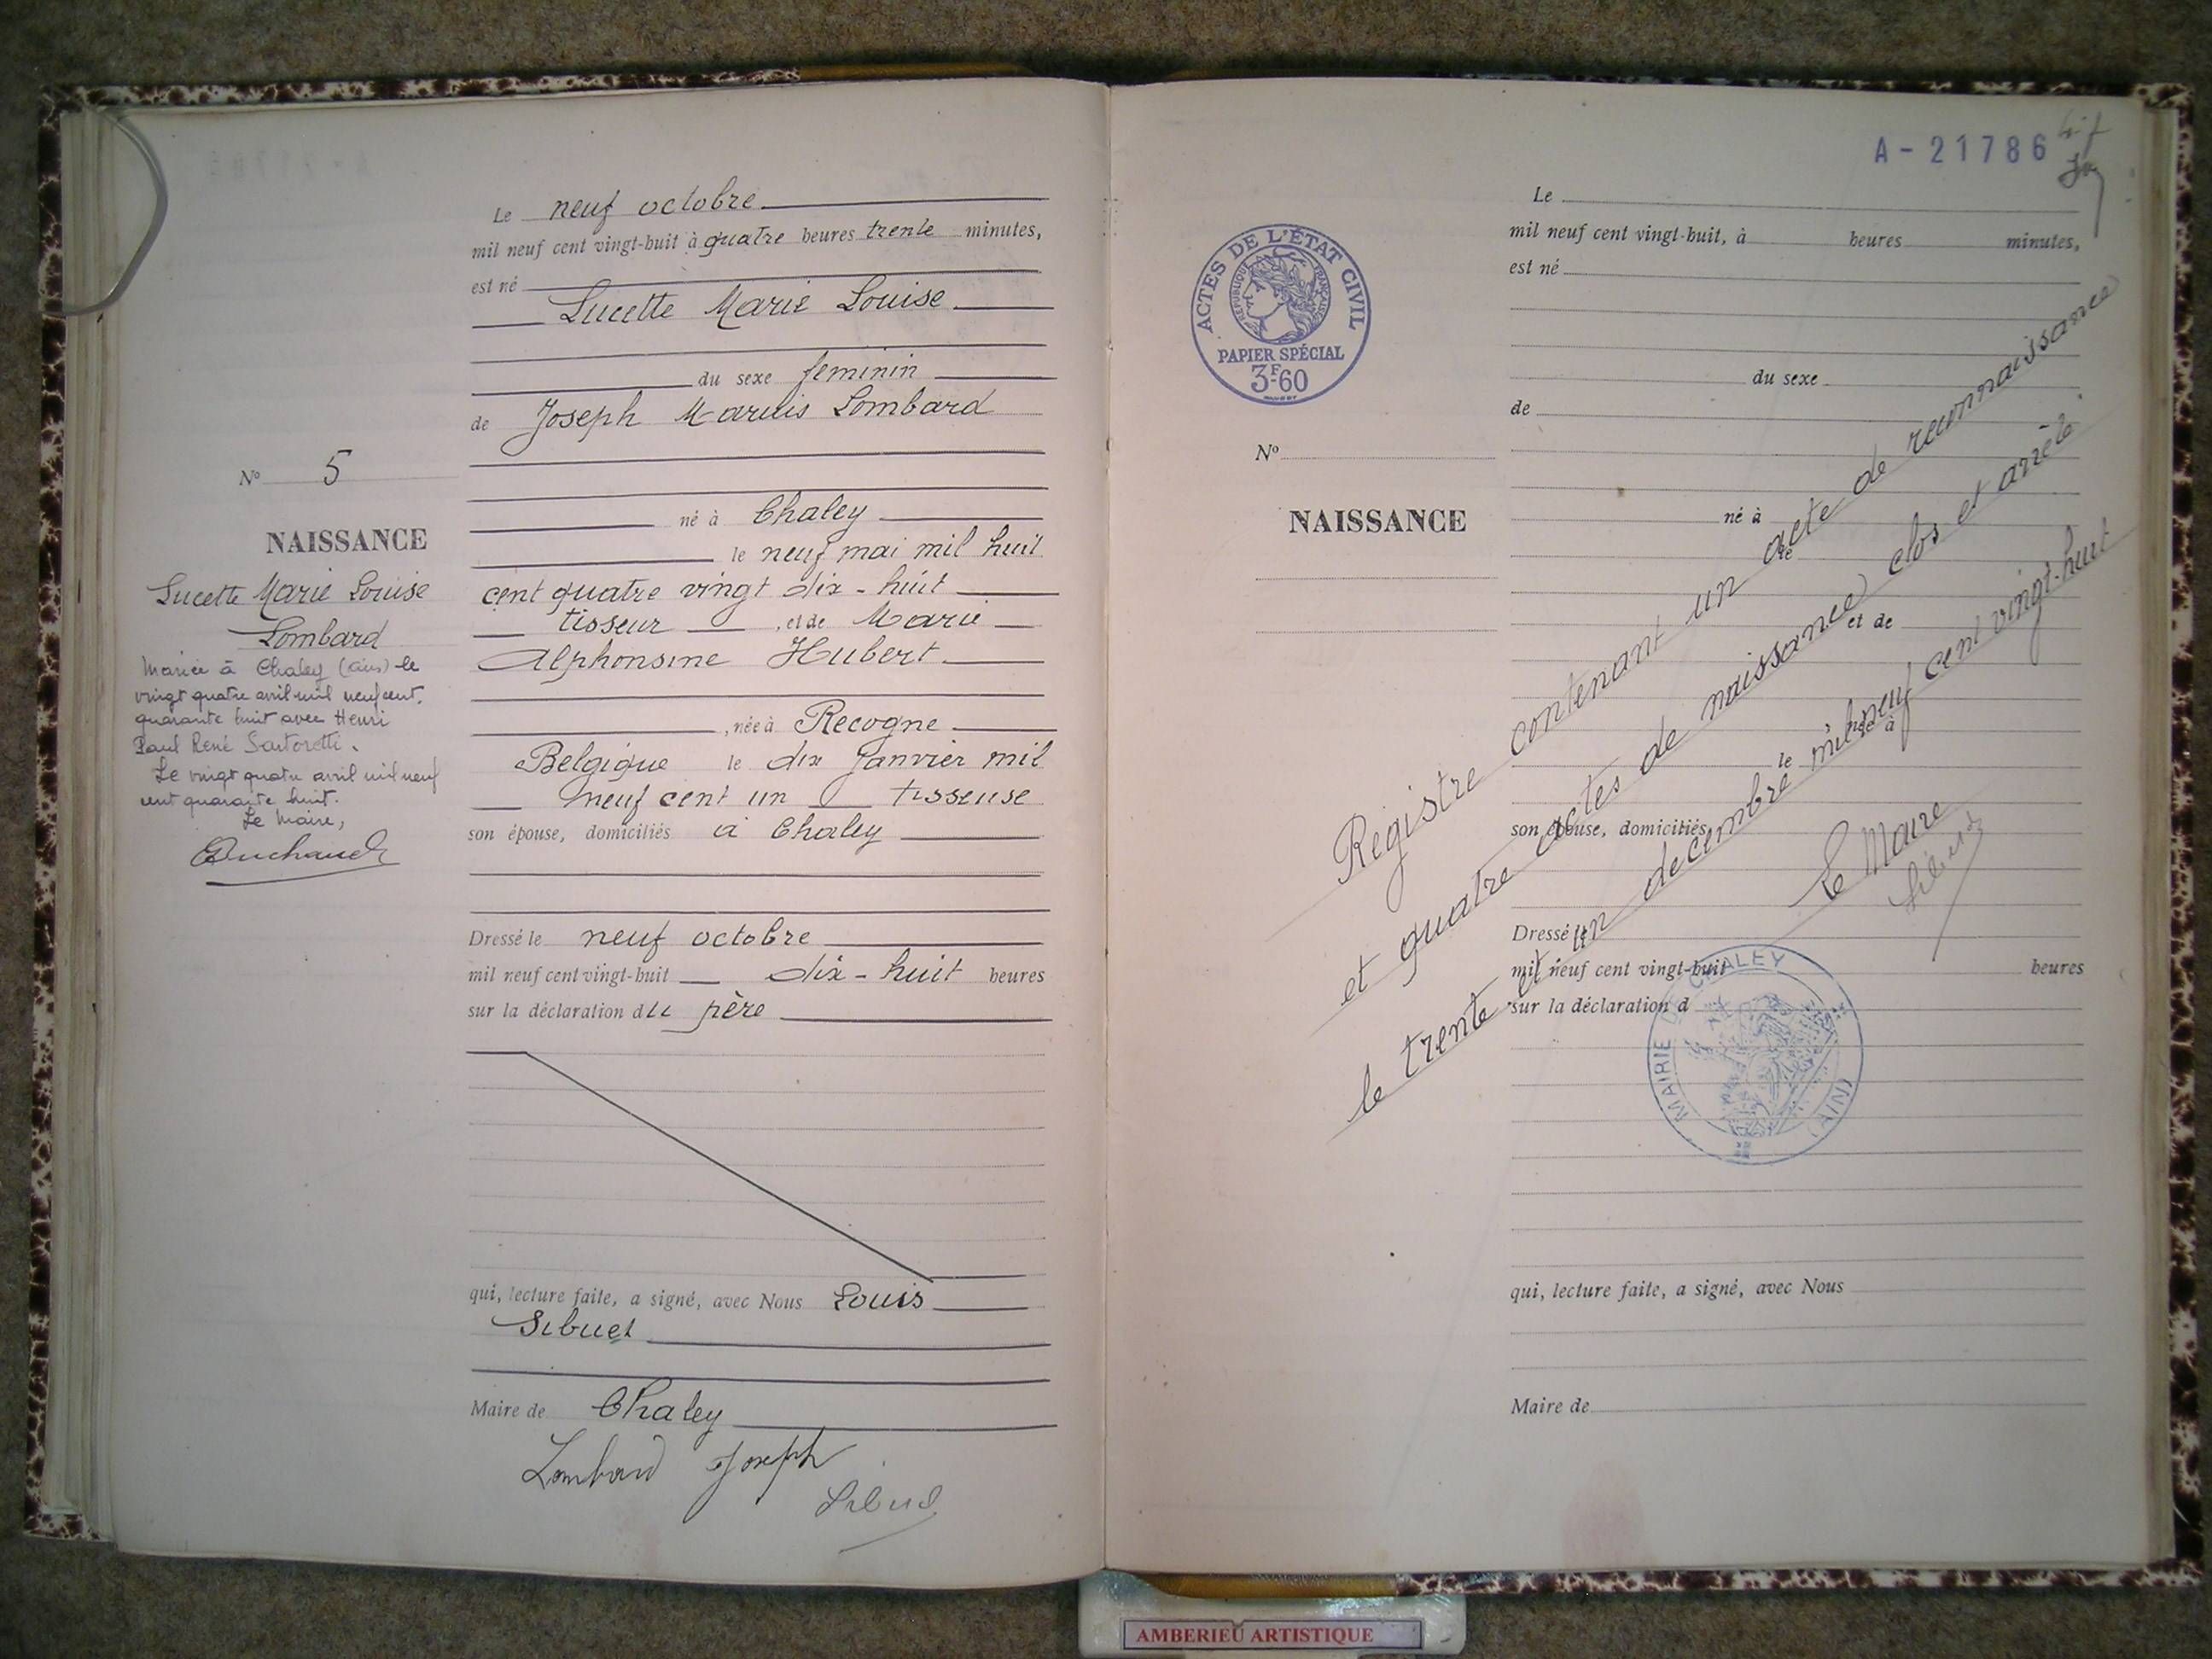 Le neuf octobre
mil neuf cent vingt-huit à quatre heures trente minutes,
est né
Lucette Marie Louise
du sexe féminin
de Joseph Marius Lombard
né à Chaley
le neuf mai mil huit
cent quatre vingt dix-huit
tisseur , et de Marie
Alphonsine Hubert
, née à Recogne
Belgique le dix Janvier mil
neuf cent un tisseuse
son épouse, domiciliés à Chaley
Dressé le neuf octobre
mil neuf cent vingt-huit dix-huit heures
sur la déclaration du père
qui, lecture faite, a signé, avec Nous Louis
Sibuet
Maire de Chaley
Lombard Joseph
Sibuet
No 5
NAISSANCE
Lucette Marie Louise
Lombard
Mariée à Chaley (Ain) le
vingt quatre avril mil neuf cent
quarante huit avec Henri
Paul René Sartoretti.
Le vingt quatre avril mil neuf
cent quarante huit.
Le Maire,
A-21786
ACTES DE L'ÉTAT CIVIL
RÉPUBLIQUE FRANÇAISE
PAPIER SPÉCIAL
3F60
No
NAISSANCE
Le
mil neuf cent vingt-huit, à heures minutes,
est né
du sexe
de
né à
le
et de
née à
le
son épouse, domiciliés
Dressé le
mil neuf cent vingt-huit heures
sur la déclaration d
qui, lecture faite, a signé, avec Nous
Maire de
Registre contenant un acte de reconnaissance
et quatre actes de naissance clos et arrêté
le trente et un décembre mil neuf cent vingt-huit
Le Maire
Sibuet
MAIRIE DE CHALEY
(AIN)
AMBERIEU ARTISTIQUE